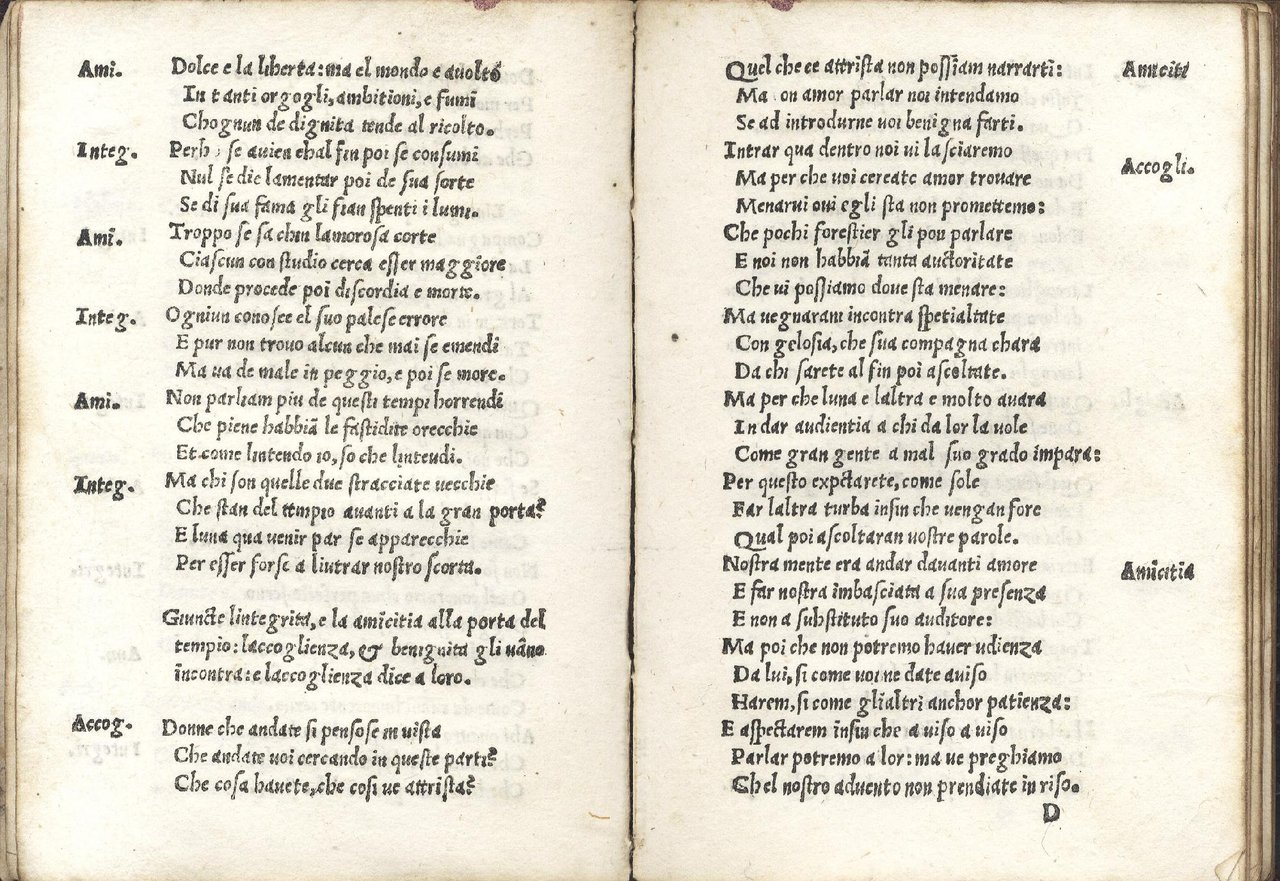 Ami. Dolce e la liberta: ma el mondo e auolto
In tanti orgogli, ambitioni, e fumi
Chognun de dignita tende al ricolto.
Integ. Perho se auien chal fin poi se consumi
Nul se die lamentar poi de sua sorte
Se di sua fama gli fian spenti i lumi.
Ami. Troppo se sa chin lamorosa corte
Ciascun con studio cerca esser maggiore
Donde procede poi discordia e morte.
Integ. Ogniun conosce el suo palese errore
E pur non trouo alcun che mai se emendi
Ma ua de male in peggio, e poi se more.
Ami. Non parliam piu de questi tempi horrendi
Che piene habbiã le fastidite orecchie
Et come lintendo io, so che lintendi.
Integ. Ma chi son quelle due stracciate uecchie
Che stan del tempio auanti a la gran porta?
E luna qua uenir par se apparecchie
Per esser forse a lintrar nostro scorta.
Giuncte lintegrita, e la amicitia alla porta del
tempio: laccoglienza, & benignita gli uãno
incontra: e laccoglienza dice a loro.
Accog. Donne che andate si pensose in uista
Che andate uoi cercando in queste parti?
Che cosa hauete, che cosi ue attrista?
Quel che ce attrista non possiam narrarti: Amiciti
Ma con amor parlar noi intendamo
Se ad introdurne uoi benigna farti.
Intrar qua dentro noi ui lasciaremo Accogli.
Ma per che uoi cercate amor trouare
Menarui oui egli sta non promettemo:
Che pochi forestier gli pon parlare
E noi non habbiã tanta auctoritate
Che ui possiamo doue sta menare:
Ma uegnarani incontra spetialtate
Con gelosia, che sua compagna chara
Da chi sarete al fin poi ascoltate.
Ma per che luna e laltra e molto auara
In dar audientia a chi da lor la uole
Come gran gente a mal suo grado impara:
Per questo expctarete, come sole
Far laltra turba insin che uengan fore
Qual poi ascoltaran uostre parole.
Nostra mente era andar dauanti amore Amicitia
E far nostra imbasciata a sua presenza
E non a substituto suo auditore:
Ma poi che non potremo hauer udienza
Da lui, si come uoi ne date auiso
Harem, si come glialtri anchor patienza:
E aspectarem insin che a uiso a uiso
Parlar potremo a lor: ma ue preghiamo
Chel nostro aduento non prendiate in riso.
D